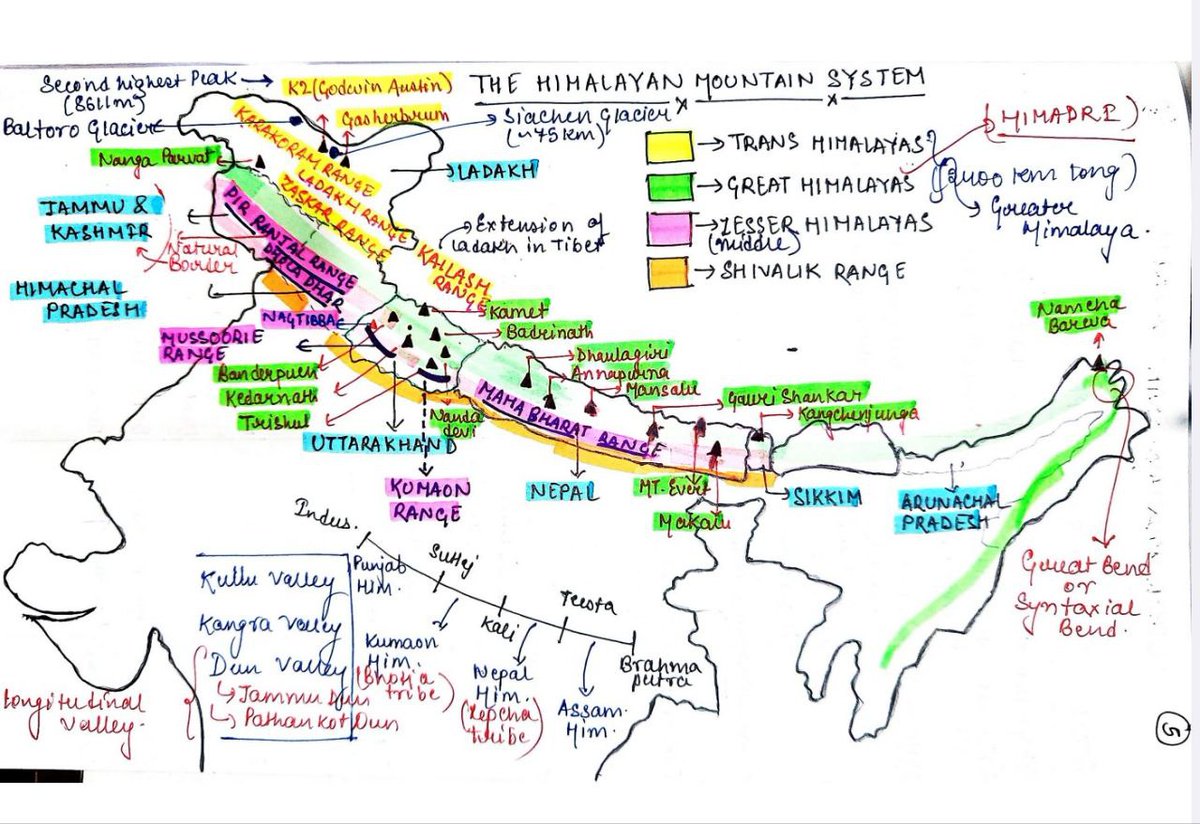 THE HIMALAYAN MOUNTAIN SYSTEM
Second highest Peak → K2 (Godwin Austin)
(8611m)
Baltoro Glacier
Gasherbrum
Siachen Glacier
(~75km)
KARAKORAM RANGE
LADAKH RANGE
ZASKAR RANGE
Nanga Parvat
LADAKH
JAMMU &
KASHMIR
PIR PANJAL RANGE
DHAR
Natural
Border
Extension of
Ladakh in Tibet
KAILASH
RANGE
HIMACHAL
PRADESH
→ TRANS HIMALAYAS
→ GREAT HIMALAYAS
→ LESSER HIMALAYAS
(middle)
→ SHIVALIK RANGE
(HIMADRI)
km long)
→ Greater
Himalaya.
NAGTIBBA
MUSSOORIE
RANGE
Banderpuch
Kedarnath
Trishul
UTTARAKHAND
Nanda
devi
KUMAON
RANGE
Kamet
Badrinath
Dhaulagiri
Annapurna
Mansalu
MAHA BHARAT RANGE
NEPAL
Gauri Shankar
Kangchenjunga
MT. Evert
Makalu
SIKKIM
ARUNACHAL
PRADESH
Namcha
Barwa
Great Bend
or
Syntaxial
Bend.
Indus.
Sutlej
Kali
Teesta
Brahma
putra
Punjab
HIM.
Kumaon
Him.
(Bhotia
tribe)
Nepal
Him.
(Lepcha
tribe)
Assam
Him.
Kullu Valley
Kangra Valley
Dun Valley
↳ Jammu Dun
↳ Pathankot Dun
Longitudinal
Valley.
5